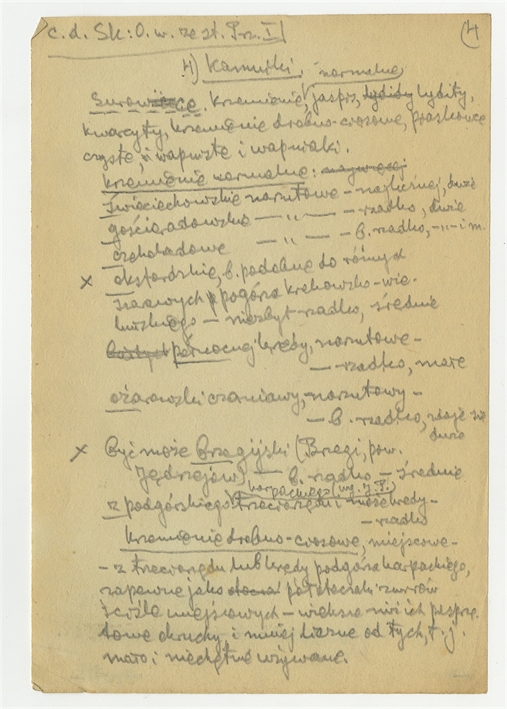 c. d. Sk: O. w. ze st. Prz. I
4
4) Kamyki
Surowiec. krzemienie normalne, jaspis, lydity,
kwarcyty, krzemienie drobno-czosowe, piaskowce
czyste, i wapniste i wapniaki.
krzemienie normalne:
świeciechowskie narzutowe – najliczniej, duże
gościeradowskie — „ — – rzadko, duże
czekoladowe — „ — – b. rzadko, – „ – i m.
x oksfordzkie, b. podobne do różnych
szarawych pogórza krakowsko-wie-
luńskiego – niezbyt rzadko, średnie
północnej kredy, narzutowe –
– rzadko, małe
ożarowski czerniawy, narzutowy –
– b. rzadko, zdaje się
duże
x Być może brzegijski (Brzegi, pow.
Jędrzejów) – b. rzadko – średnie
karpackiego (wg. J. P.)
z podgórskiego trzeciorzędu i może kredy –
– rzadko
krzemienie drobno-czosowe, miejscowe –
– z trzeciorzędu lub kredy podgórza karpackiego,
zapewne jako półotoczaki z żwirów
ściśle miejscowych – większe niż ich
towe okruchy, i mniej liczne od tych, t. j.
mało i niechętnie używane.